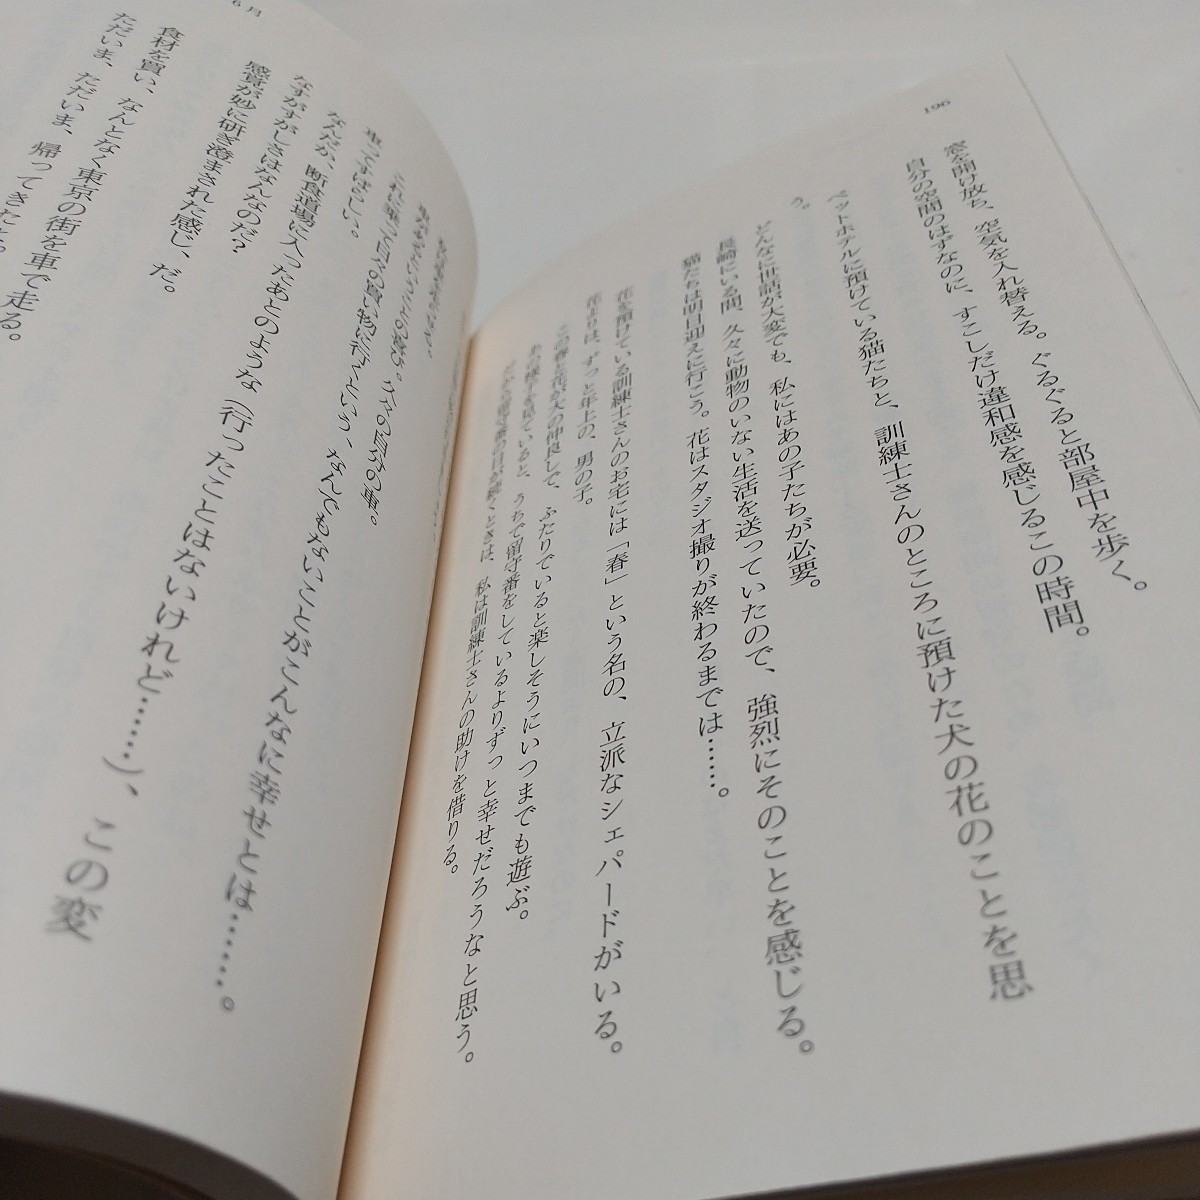 196
窓を開け放ち、空気を入れ替える。ぐるぐると部屋中を歩く。
自分の空間のはずなのに、すこしだけ違和感を感じるこの時間。
ペットホテルに預けている猫たちと、訓練士さんのところに預けた犬の花のことを思
う。
どんなに世話が大変でも、私にはあの子たちが必要。
長崎にいる間、久々に動物のいない生活を送っていたので、強烈にそのことを感じる。
猫たちは明日迎えに行こう。花はスタジオ撮りが終わるまでは……。
花を預けている訓練士さんのお宅には「春」という名の、立派なシェパードがいる。
花よりは、ずっと年上の、男の子。
この春と花が大の仲良しで、ふたりでいると楽しそうにいつまでも遊ぶ。
あの様子を見ていると、うちで留守番をしているよりずっと幸せだろうなと思う。
だから留守番の日が続くときは、私は訓練士さんの助けを借りる。
6月
久々の自分の車。
これに乗って日々の買い物に行くという、なんでもないことがこんなに幸せとは……。
車ってすばらしい。
なんだか、断食道場に入ったあとのような（行ったことはないけれど……）、この変
なすがすがしさはなんなのだ？
感覚が妙に研ぎ澄まされた感じ、だ。
食材を買い、なんとなく東京の街を車で走る。
ただいま、ただいま、帰ってきたよ